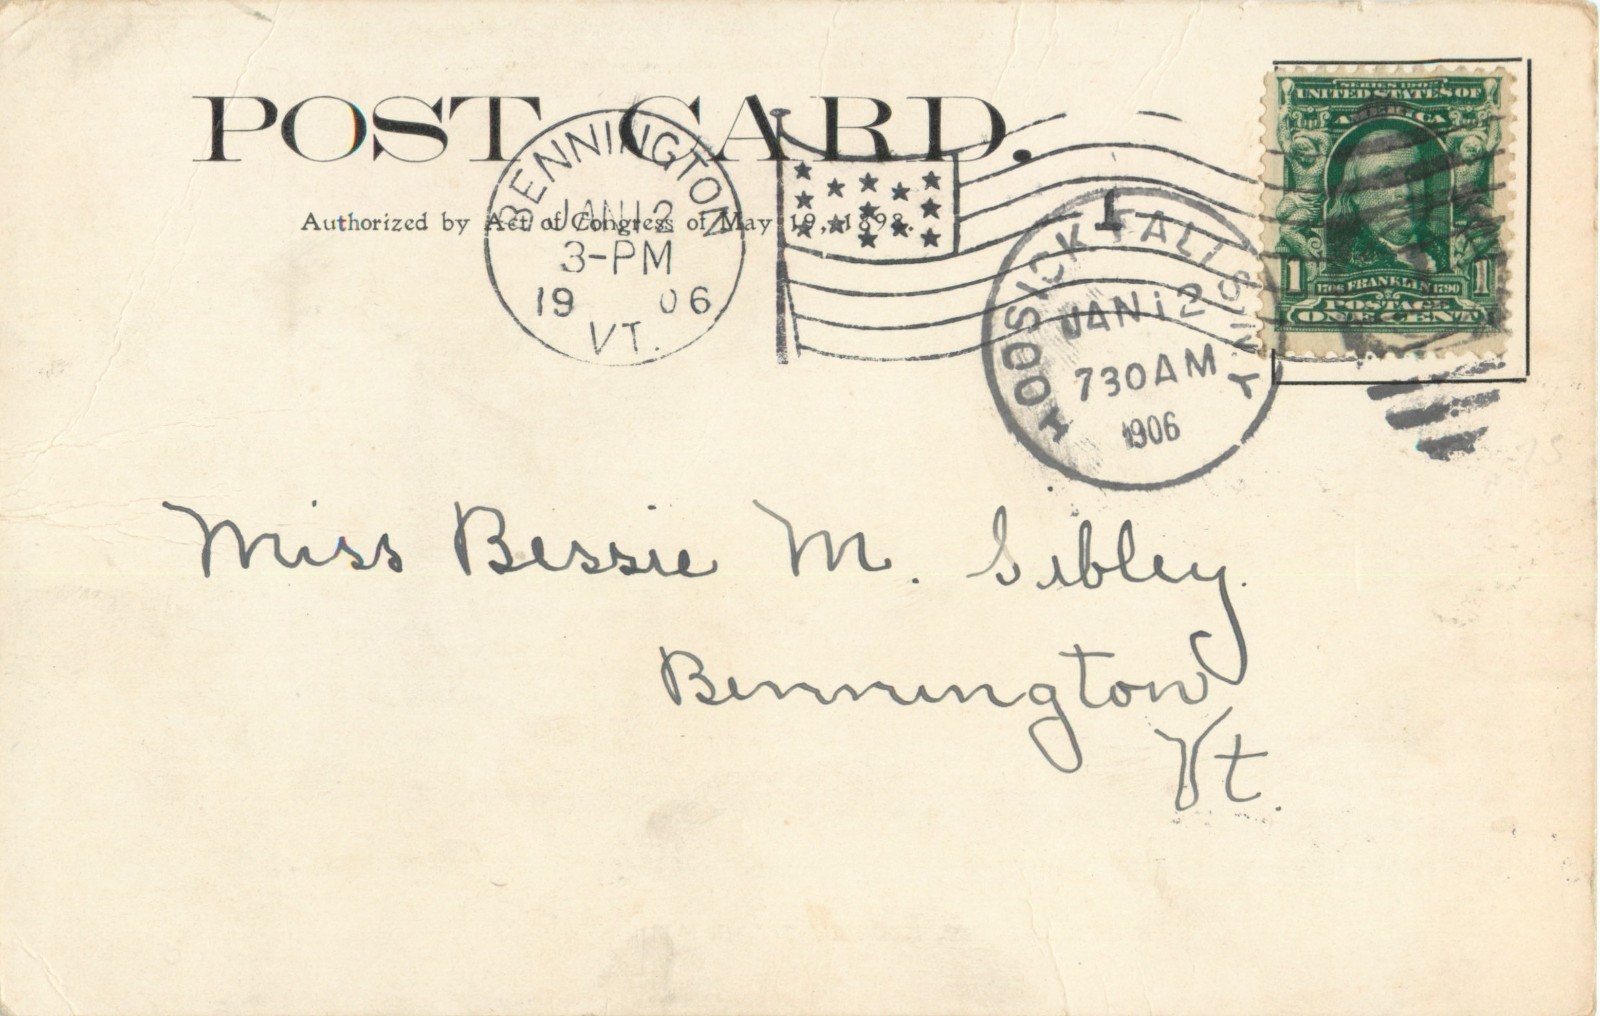 POST CARD.
Authorized by Act of Congress of May 19, 1898.
BENNINGTON
JAN 12
3-PM
19 06
VT.
1
HOOSICK FALLS N.Y.
JAN 12
730AM
1906
SERIES 1902
UNITED STATES OF
AMERICA
1 1706 FRANKLIN 1790 1
POSTAGE
ONE CENT
Miss Bessie M. Sibley.
Bennington
Vt.